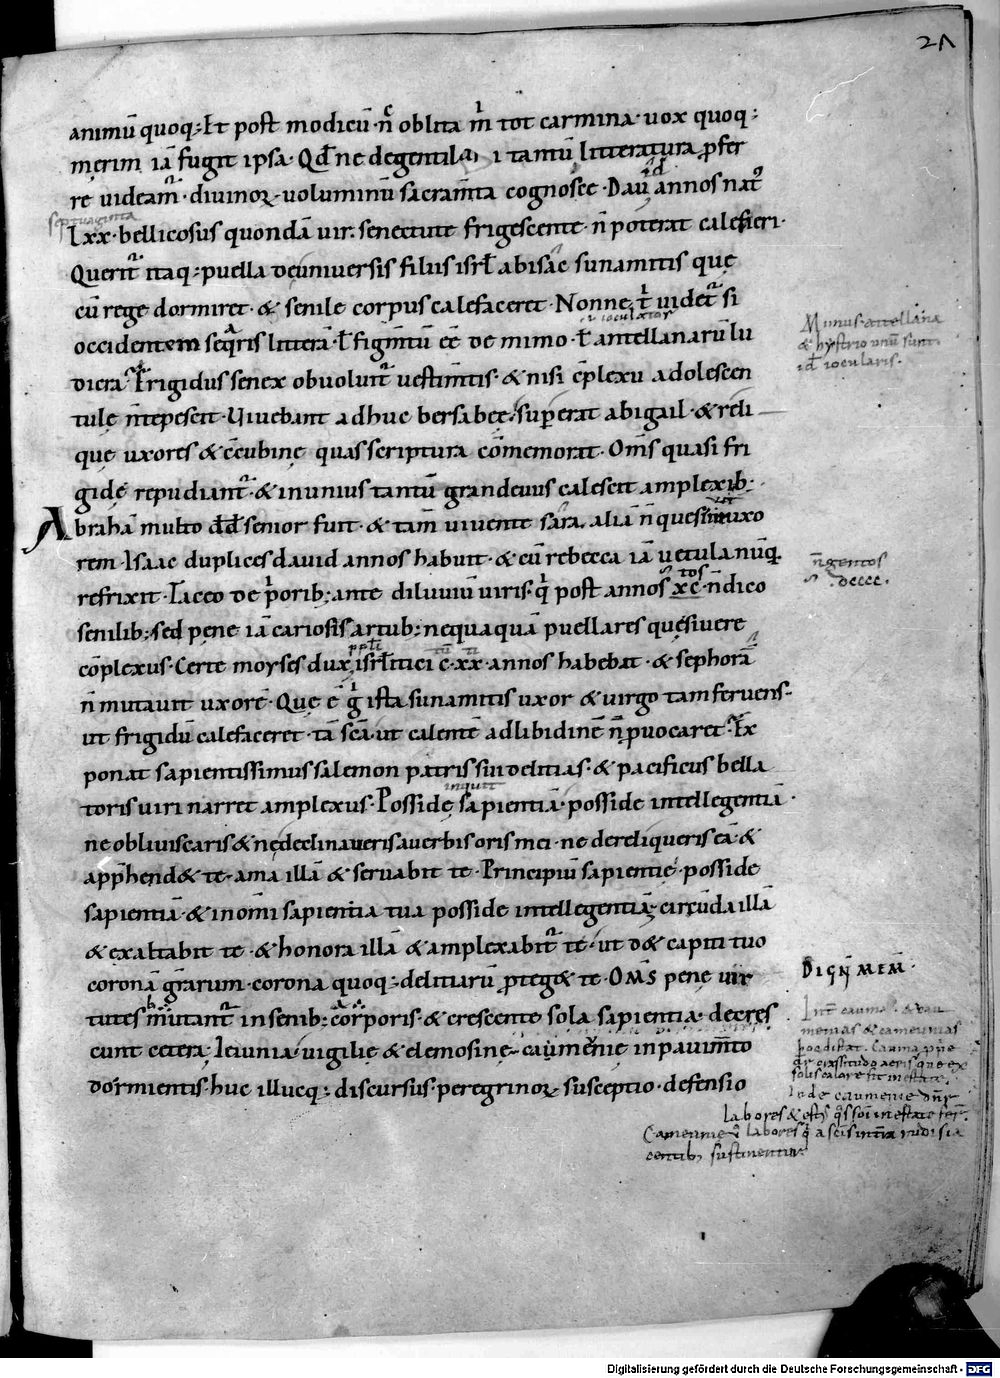 21
animū quoq; Et post modicū n̄c oblita m̄ tot carmina · uox quoq;
merim iā fugit ipsa · Qđ ne de gentili tantū litteratura ꝓfer
re uideam̄ · diuinoꝝ uoluminū sacram̄ta cognosce · Dauid annos nat᷒
septuaginta
Lxx · bellicosus quondā uir · senectute frigescente · n̄ poterat calefieri ·
Querit̄ itaq; puella de uniuersis filiis isrł abisac sunamitis que
cū rege dormiret · & senile corpus calefaceret · Nonne t̄ uidet̄ si
ł iocularior
occidentem seq̄ris litterā · ł figm̄tū eē de mimo · ł antellanarū lu
dicra · Frigidus senex obuoluit̄ uestim̄tis · & nisi cōplexu adolescen
tule n̄ tepescit · Uiuebant adhuc bersabee · supererat abigail · & reli
que uxores & cōcubine quas scriptura cōmemorat · Om̄s quasi fri
gide repudiant̄ · & in unius tantū grandeuus calescit amplexib;
Abrahā multo dđ senior fuit · & tam̄ uiuente sara · aliā n̄ quesiuit uxo
rem · Isaac duplices dauid annos habuit · & cū rebecca iā uetula nūq̄
refrixit · Taceo de p̄orib; ante diluuiū uiris · q̄ post annos xc tos · n̄ dico
senilib; sed pene iā cariosis artub; nequaquā puellares quesiuere
cōplexus · Certe moyses dux ppłi isrł̄itici c · xx · annos habebat · & sephorā
n̄ mutauit uxorē · Que ē ḡ ista sunamitis uxor & uirgo tam feruens ·
ut frigidū calefaceret · tā scā · ut calentē ad libidinē n̄ ꝓuocaret · Ex
ponat sapientissimus salemon patris sui delitias · & pacificus bella
inquit
toris uiri narret amplexus · Posside sapientiā · posside intellegentiā ·
ne obliuiscaris & ne declinaueris a uerbis oris mei · ne dereliqueris eā · &
app̄hend& te · ama illā & seruabit te · Principiū sapientie · posside
sapientiā · & in om̄i sapientia tua posside intellegentiā · circūda illā
& exaltabit te · & honora illā & amplexabit̄ te · ut d& capiti tuo
coronā gr̄arum · corona quoq; delitiarū ꝓteg& te · Om̄s pene uir
tutes mutant̄ in senib; corporis · & crescente sola sapientia · decres
cunt cetera; Ieiunia · uigilie & elemosine · caumenie in pauim̄to
dormientis · huc illucq; discursus · peregrinoꝝ susceptio · defensio
Mimus · attellana
& hystrio unū sunt ·
id iocularis ·
n̄gentos
dcccc ·
DIGN̄ MEM̄ ·
Inde caumenie dn̄r
labores & estus
Cameunie labores
centib; sustinentur
Digitalisierung gefördert durch die Deutsche Forschungsgemeinschaft - DFG